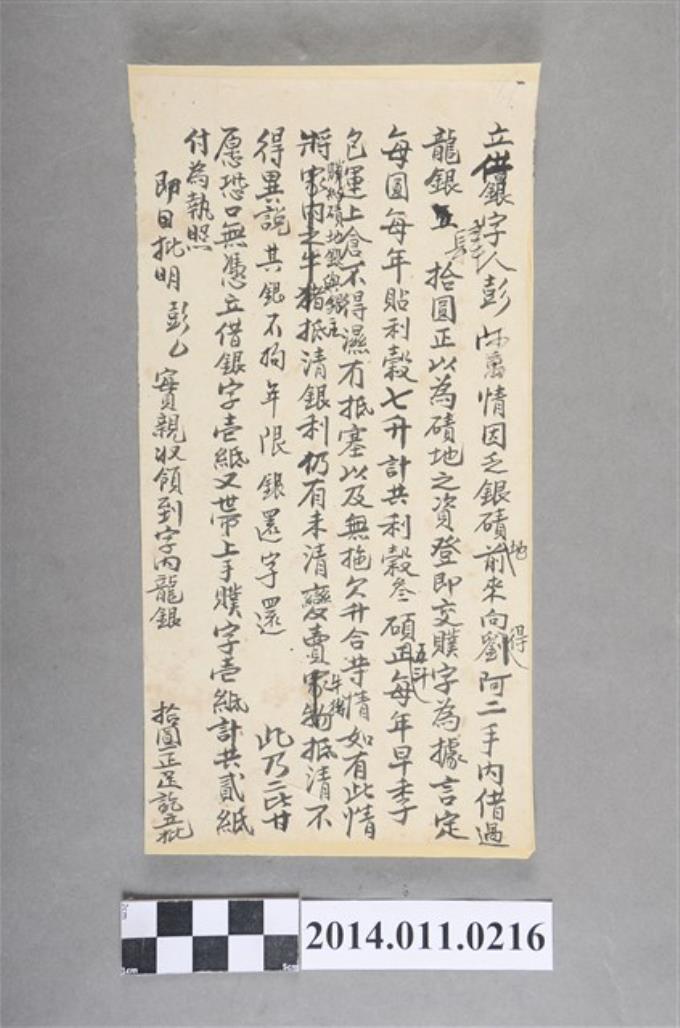 立借銀字人彭 情因乏銀磧地前來向劉得阿二手內借過
龍銀五肆拾圓正以為磧地之資登即交贌字為據言定
每圓每年貼利穀七升計共利穀叁碩五斗正每年早季
包運上倉不得濕冇抵塞以及無拖欠升合等情如有此情
將 磧地銀與銀主
家內之牛豬抵清銀利仍有未清變賣家物牛豬抵清不
得異說其銀不拘年限銀還字還 此乃二比甘
愿恐口無憑立借銀字壹紙又帶上手贌字壹紙計共貳紙
付為執照
即日批明彭乙實親收領到字內龍銀 拾圓正足訖立批
2014.011.0216
0cm
1cm
5cm